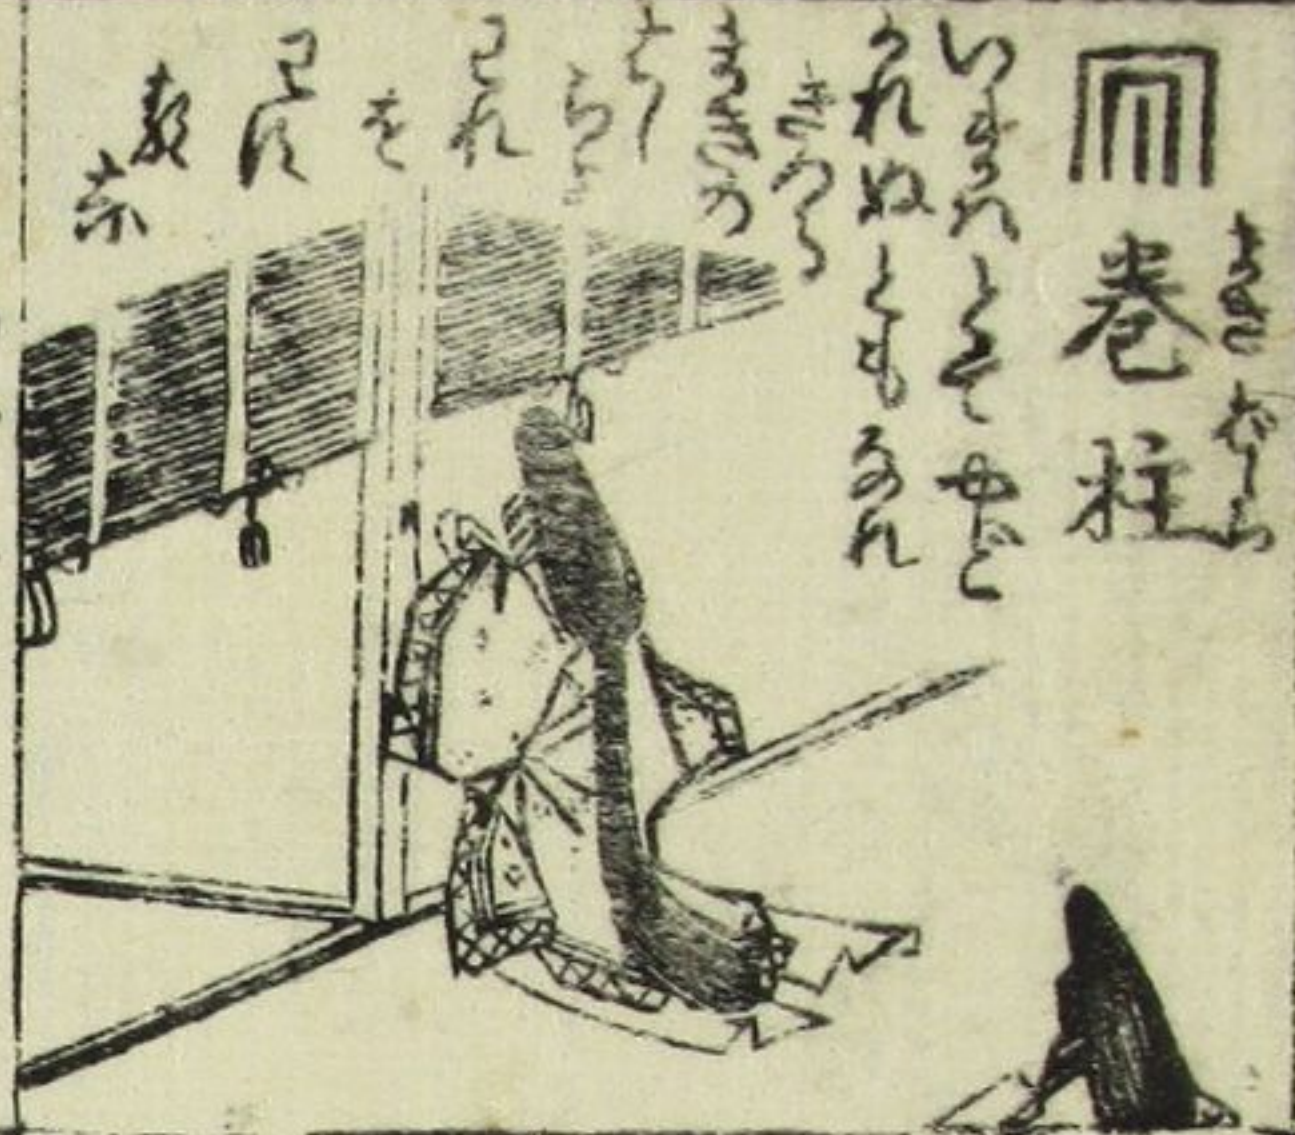 まきばしら
巻柱
いまはとてやど
かれぬともなれ
きつる
まきの
はし
らは
われ
を
わす
るな